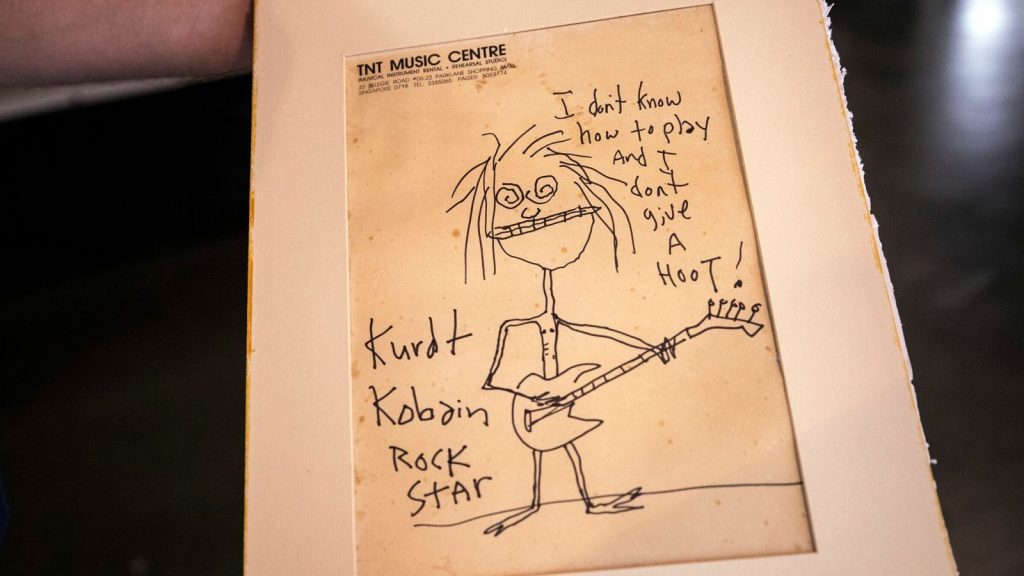 TNT MUSIC CENTRE
(MUSICAL INSTRUMENT RENTAL • REHEARSAL STUDIO)
35 SELEGIE ROAD #05-22 PARKLANE SHOPPING MALL
SINGAPORE 0718 TEL: 3385065 PAGER: 5053774
I don't know
how to play
And I
don't
give
A
HOOT!
Kurdt
Kobain
Rock
Star